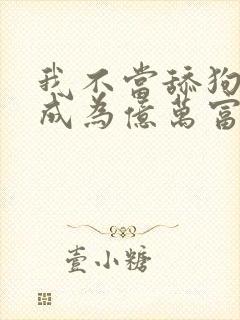 我不當舔狗
成為億萬富
壹小糖